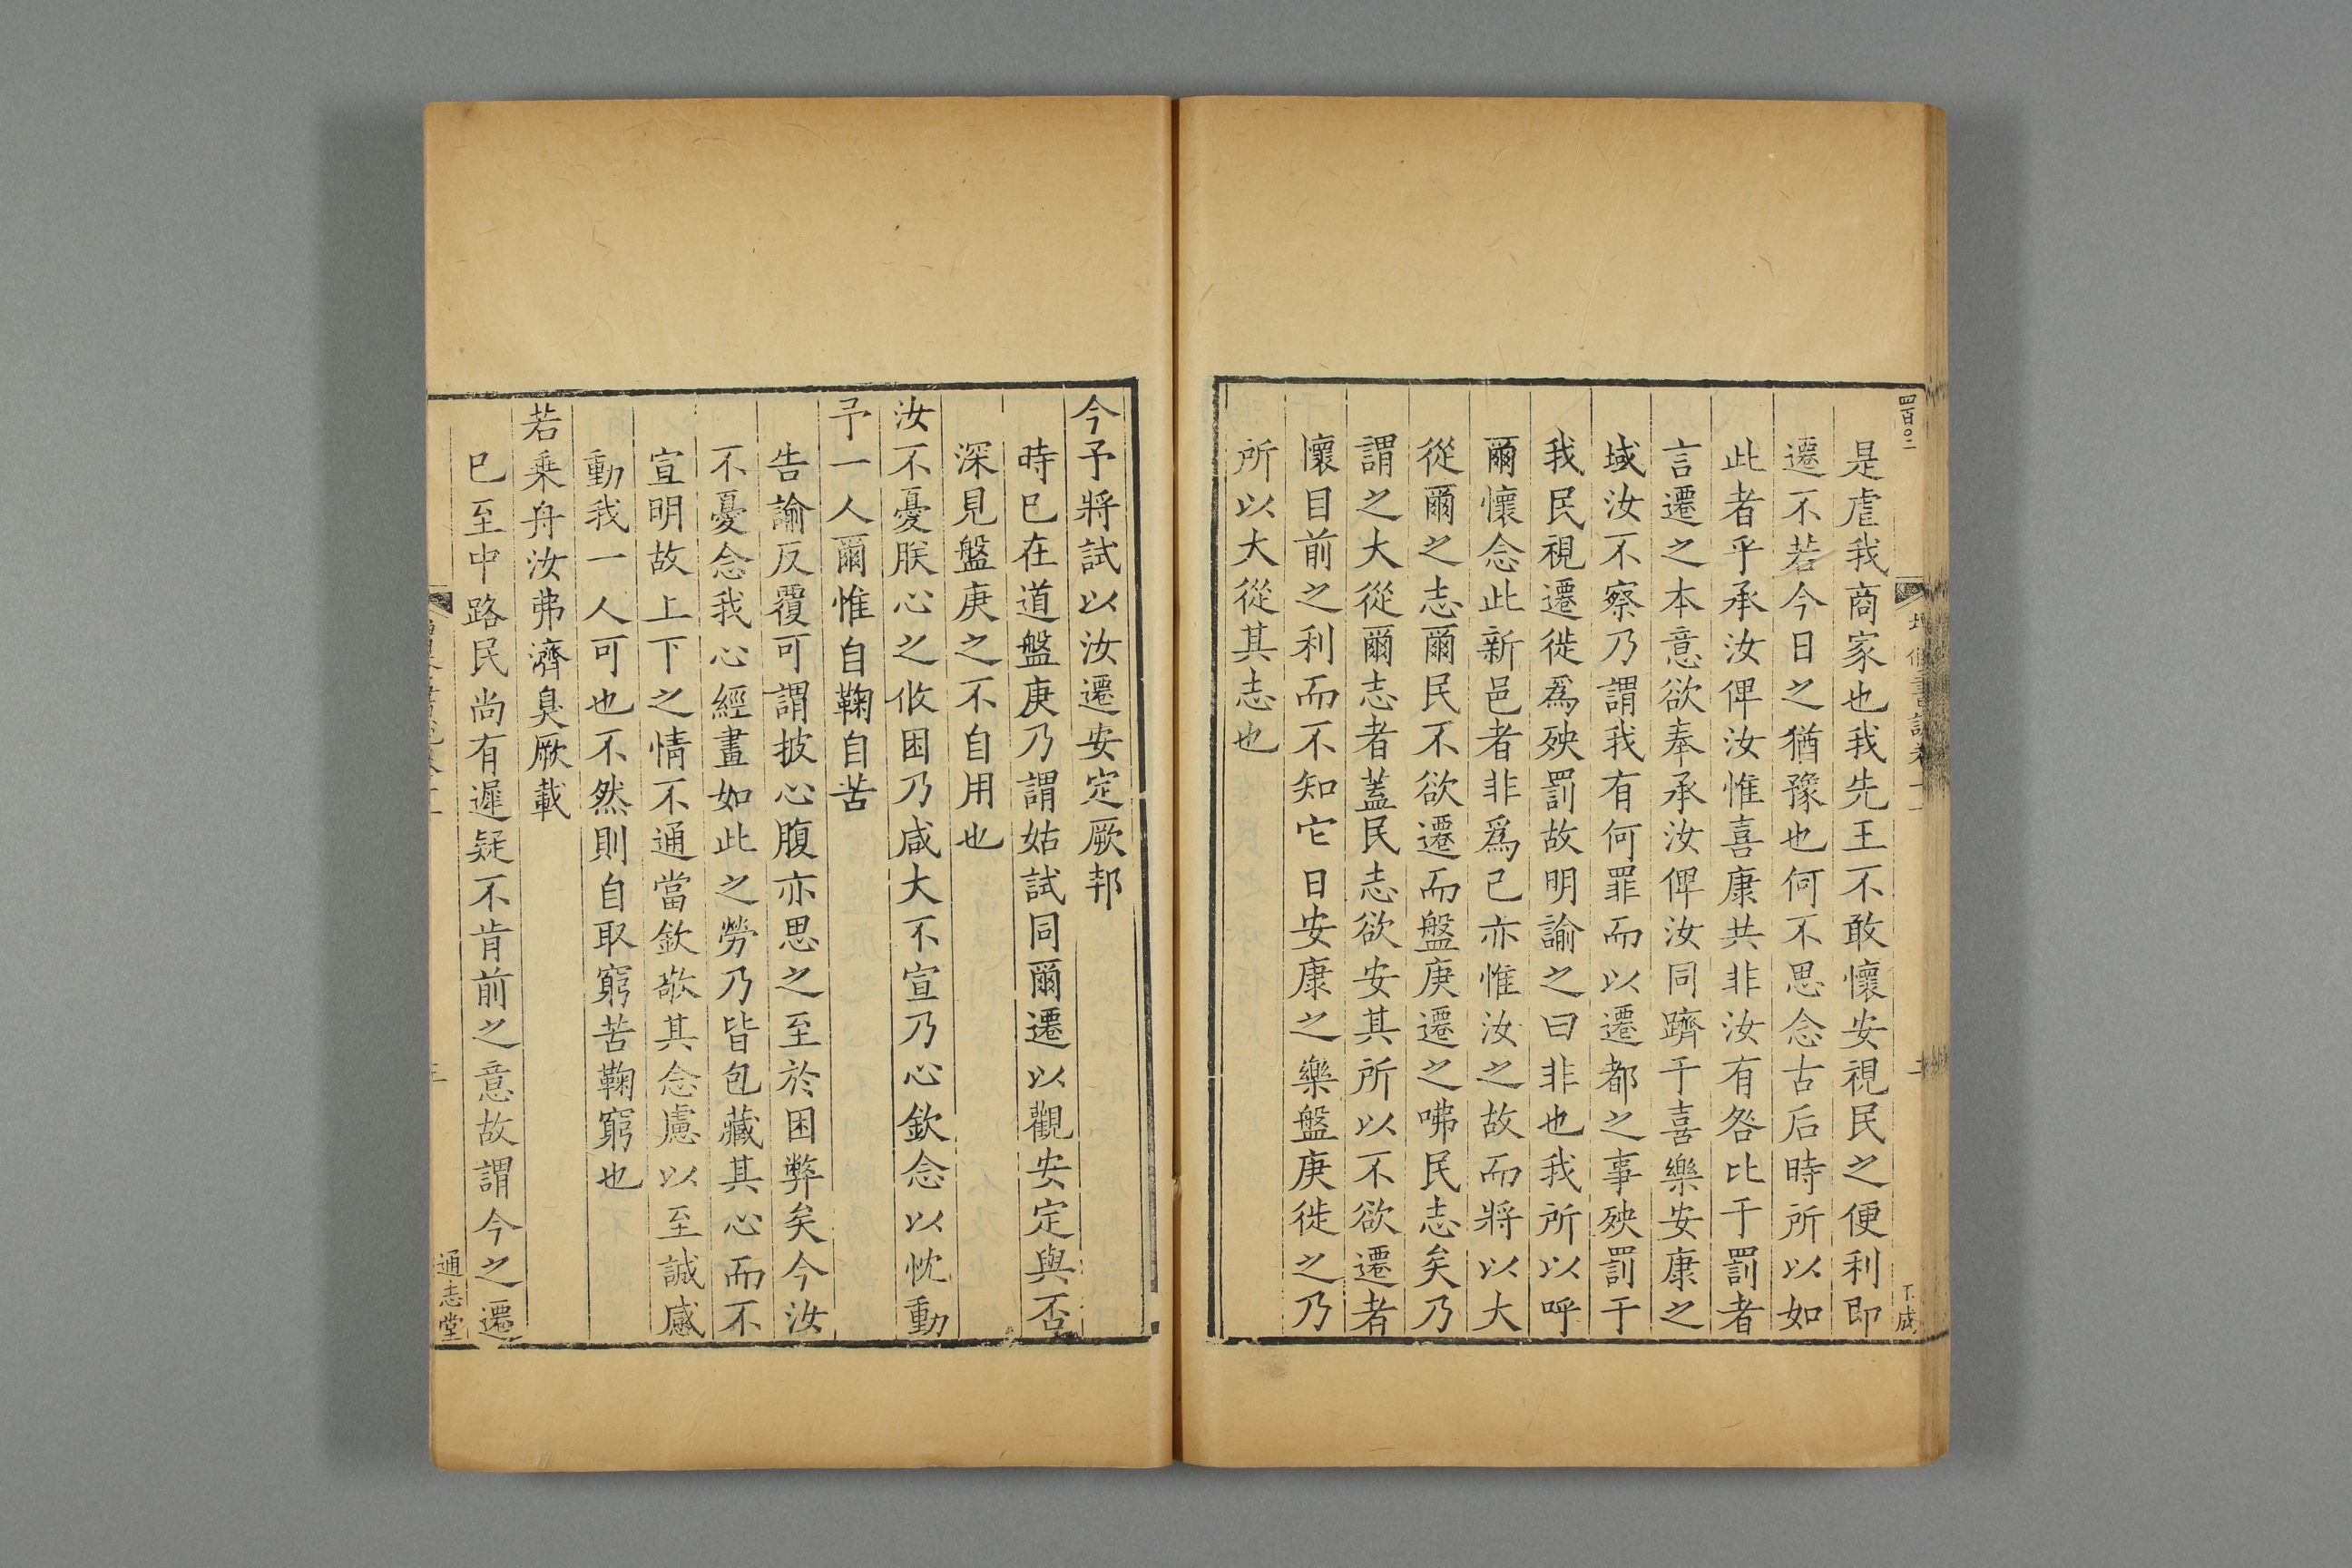 四百〇二
是虐我商家也我先王不敢懷安視民之便利即
遷不若今日之猶豫也何不思念古后時所以如
此者乎承汝俾汝惟喜康共非汝有咎比于罰者
言遷之本意欲奉承汝俾汝同躋于喜樂安康之
域汝不察乃謂我有何罪而以遷都之事殃罰于
我民視遷徙爲殃罰故明諭之曰非也我所以呼
爾懷念此新邑者非爲己亦惟汝之故而將以大
從爾之志爾民不欲遷而盤庚遷之咈民志矣乃
謂之大從爾志者蓋民志欲安其所以不欲遷者
懷目前之利而不知它日安康之樂盤庚徙之乃
所以大從其志也
今予將試以汝遷安定厥邦
時已在道盤庚乃謂姑試同爾遷以觀安定與否
深見盤庚之不自用也
汝不憂朕心之攸困乃咸大不宣乃心欽念以忱動
予一人爾惟自鞠自苦
告諭反覆可謂披心腹亦思之至於困弊矣今汝
不憂念我心經畫如此之勞乃皆包藏其心而不
宣明故上下之情不通當欽敬其念慮以至誠感
動我一人可也不然則自取窮苦鞠窮也
若乗舟汝弗濟臭厥載
已至中路民尚有遲疑不肯前之意故謂今之遷
通志堂